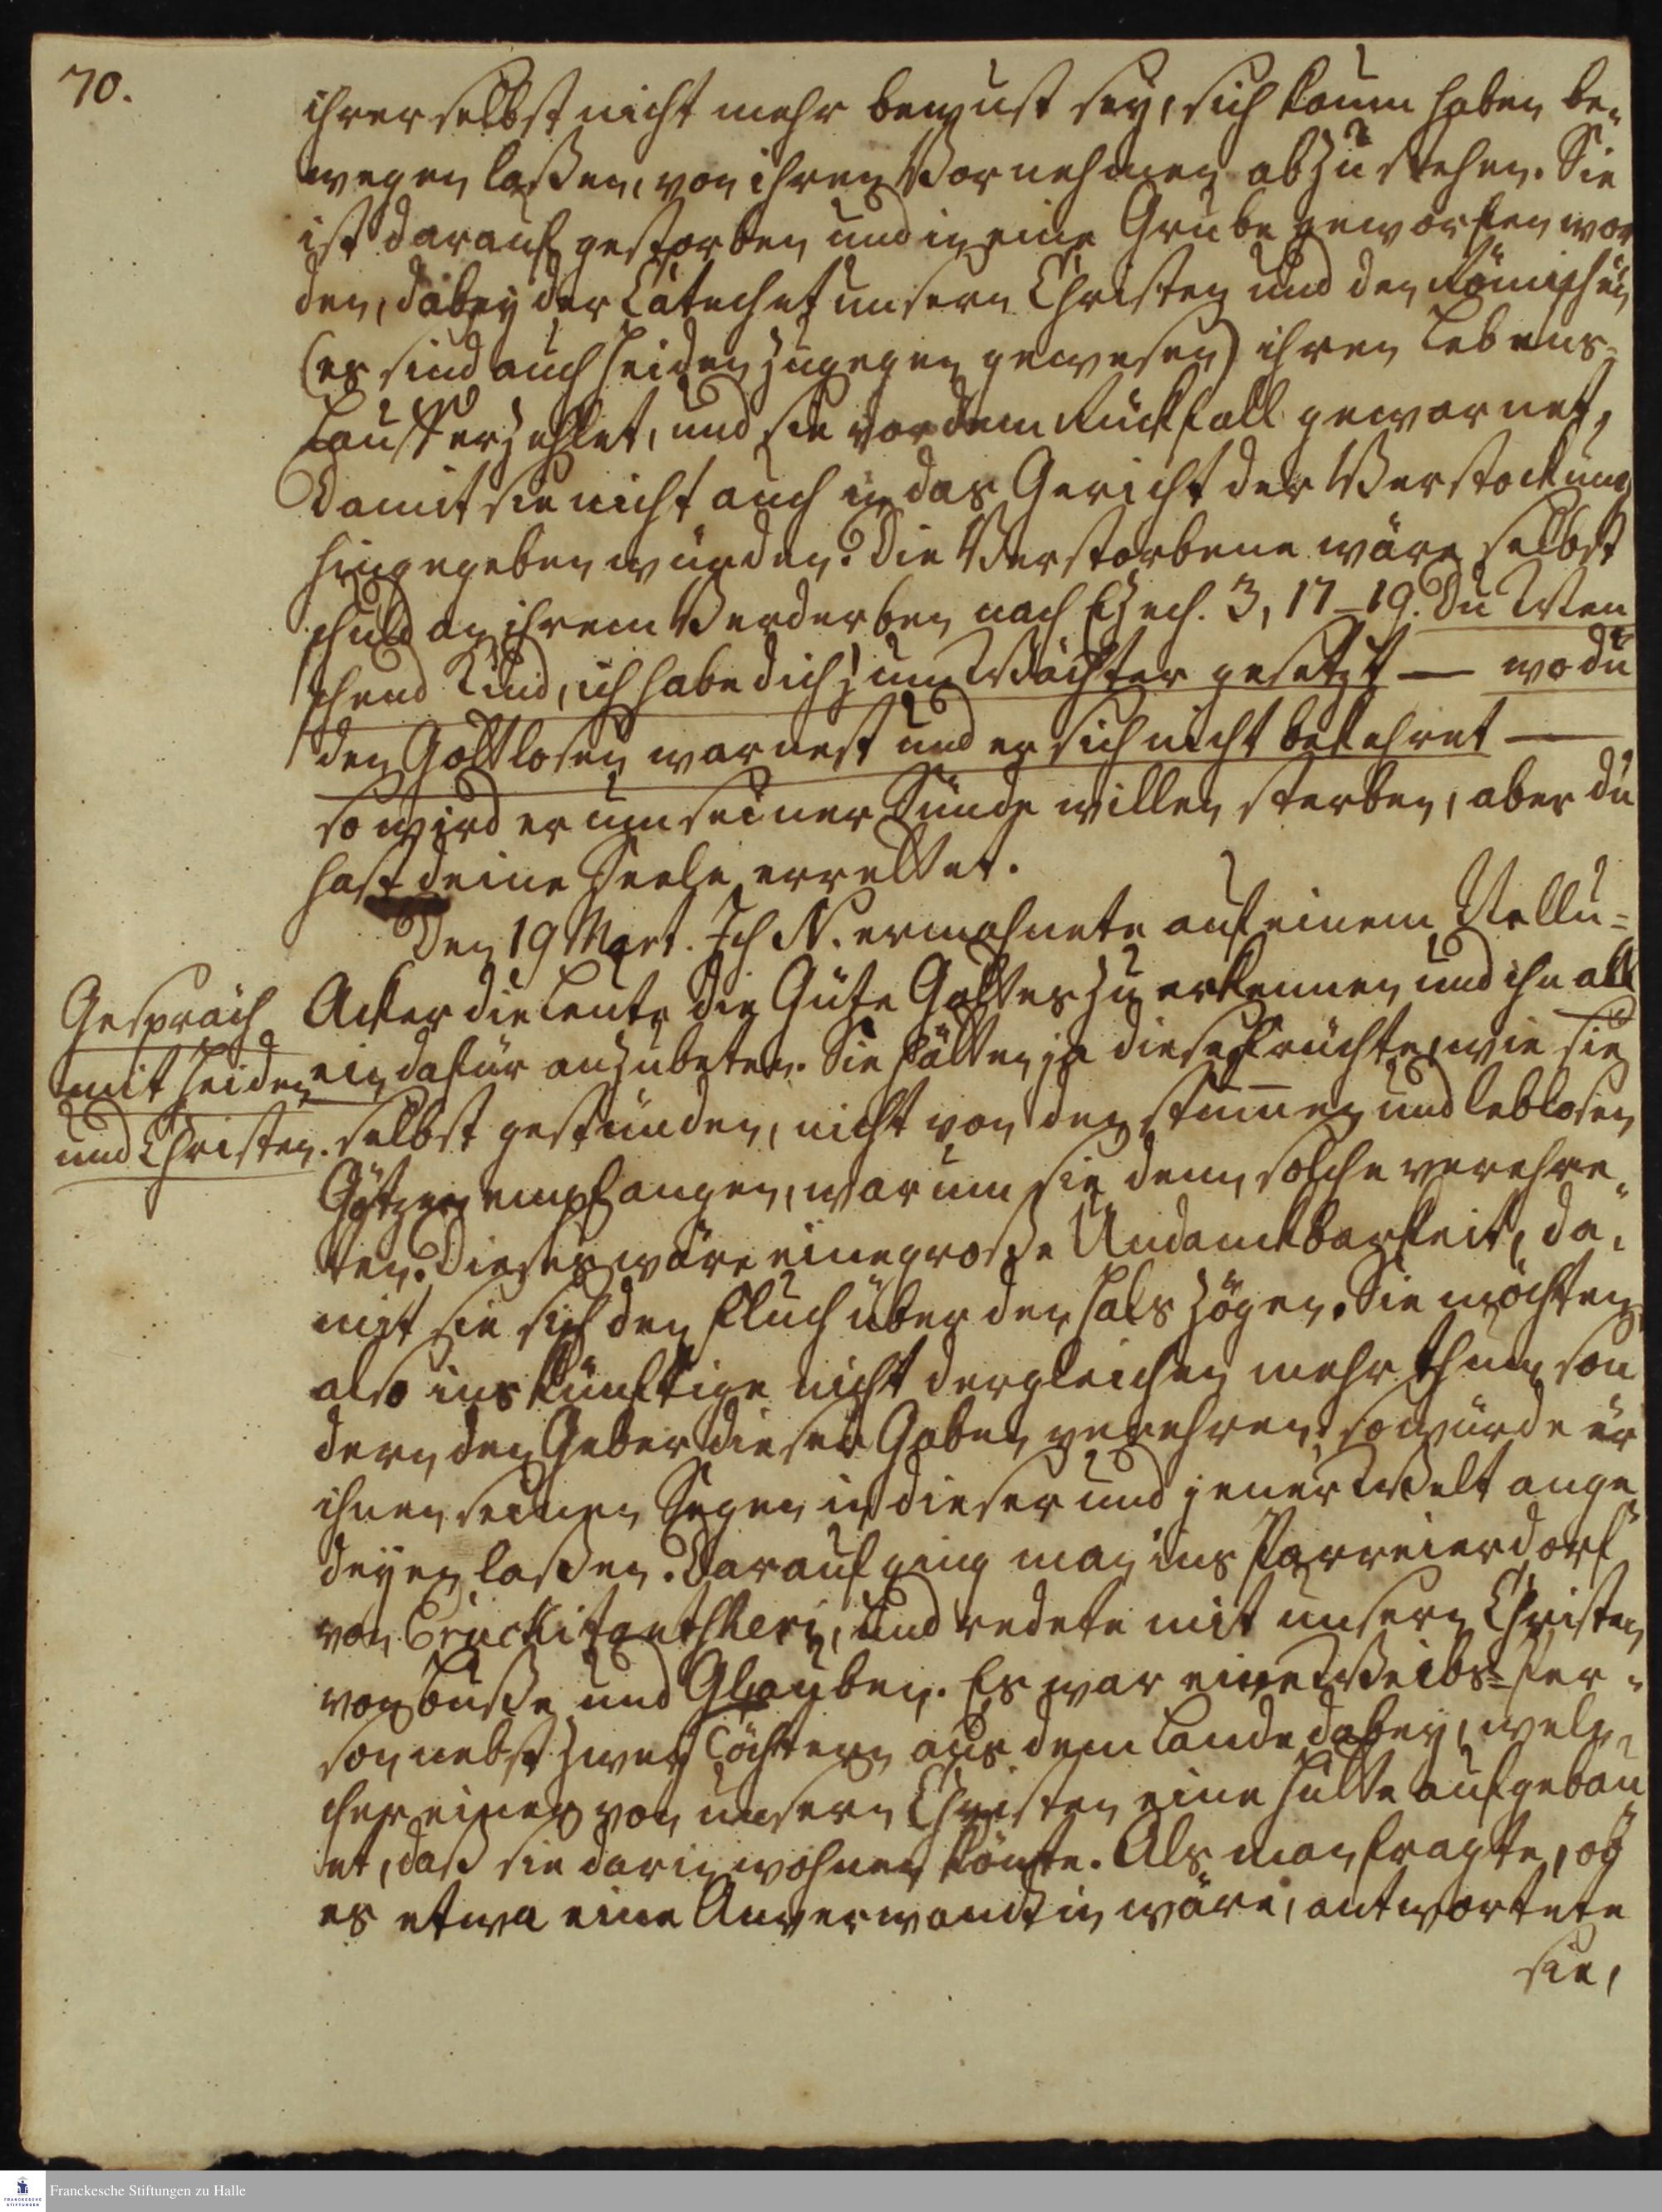 70.
ihrer selbst nicht mehr bewust sey, sich kaum haben be-
wegen laßen, von ihren Vornehmen abzustehen. Sie
ist darauf gestorben und in eine Grube geworfen wor
den, dabey der Catechet unsern Christen und den Römischen
(es sind auch Heiden zugegen gewesen) ihren Lebens-
Lauff erzehlet, und sie vor dem Rückfall gewarnet,
damit sie nicht auch in das Gericht der Verstockung
hingegeben würden. Die Verstorbene wäre selbst
schuld an ihrem Verderben nach Ezech. 3, 17-19. Du Men
schen Kind, ich habe dich zum Wächter gesetzt — wo du
den Gottlosen warnest und er sich nicht bekehret —
so wird er um seiner Sünde willen sterben, aber du
hast deine Seele errettet.
Den 19 Mart. Ich N. ermahnete auf einem Nellu-
Gespräch
mit Heiden
und Christen.
Acker die Leute die Güte Gottes zu erkennen und ihn all
ein dafür anzubeten. Sie hätten ja diese Früchte, wie sie
selbst gestünden, nicht von den stummen und leblosen
Götzen empfangen, warum sie denn solche verehre-
ten. Dieses wäre eine große Undanckbarkeit, da-
mit sie sich den Fluch über den Hals zögen. Sie möchten
also ins künftige nicht dergleichen mehr thun, son
dern den Geber dieser Gaben verehren, so würde er
ihnen seinen Segen in dieser und jener Welt ange
deyen laßen. Darauf ging man ins Parreierdorf
von Eruckitantscheri, und redete mit unsern Christen
von Buße und Glauben. Es war eine Weibs-Per-
son nebst zwey Töchtern aus dem Lande dabey, wel-
cher einer von unsern Christen eine Hütte aufgebau
et, daß sie darin wohnen könte. Als man fragte, ob
es etwa eine Anverwandtin wäre, antwortete
sie,
Franckesche Stiftungen zu Halle